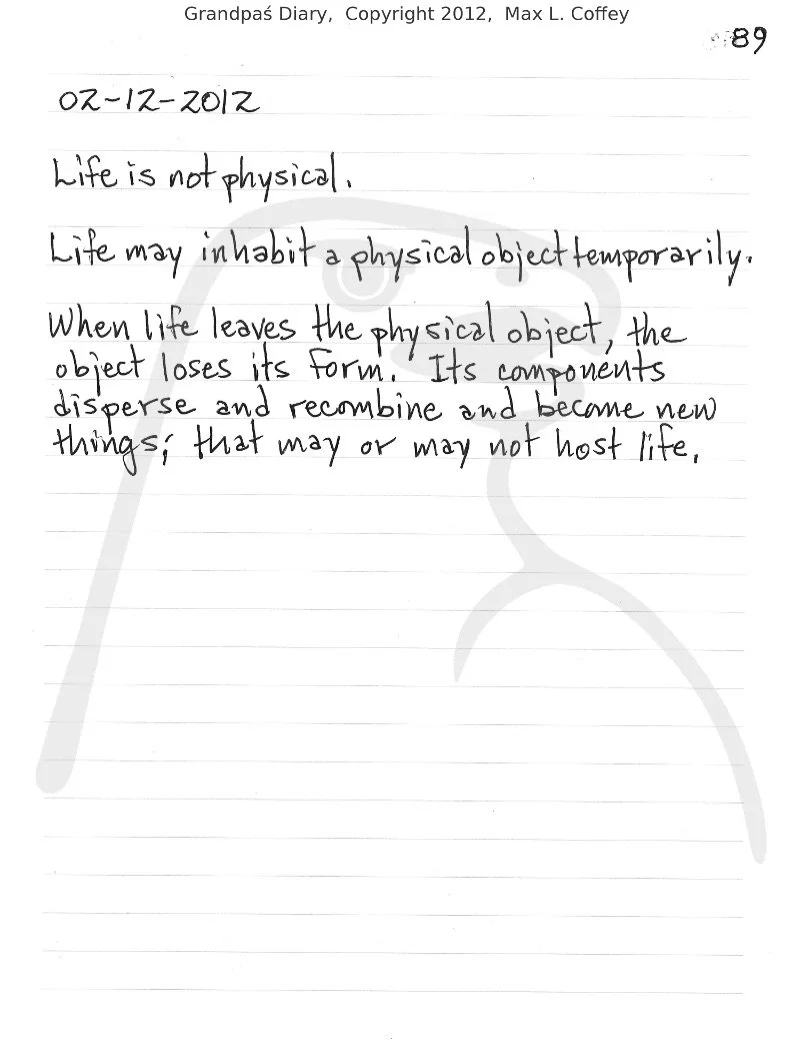 Grandpaś Diary, Copyright 2012, Max L. Coffey
89
02-12-2012
Life is not physical.
Life may inhabit a physical object temporarily.
When life leaves the physical object, the
object loses its form. Its components
disperse and recombine and become new
things; that may or may not host life.